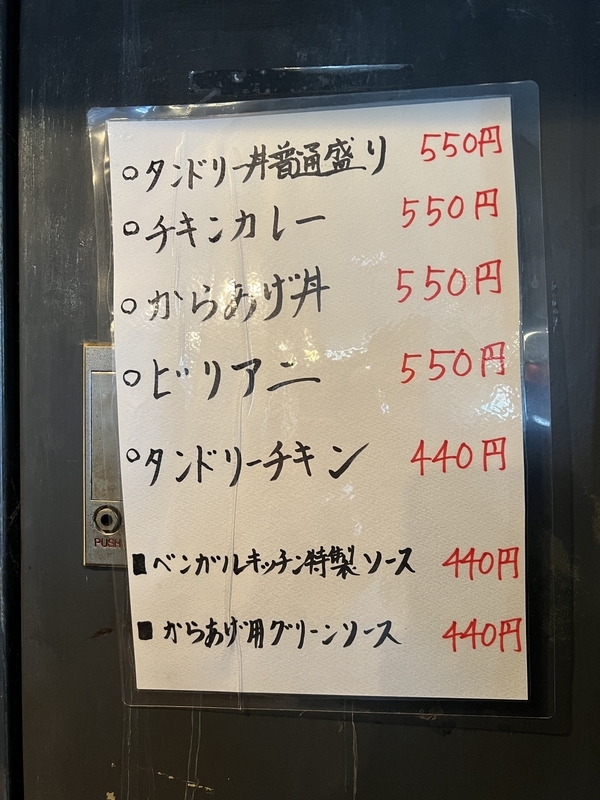 ○タンドリー丼普通盛り 550円
○チキンカレー 550円
○からあげ丼 550円
○ビリアニ 550円
○タンドリーチキン 440円
■ベンガルキッチン特製ソース 440円
■からあげ用グリーンソース 440円
PUSH